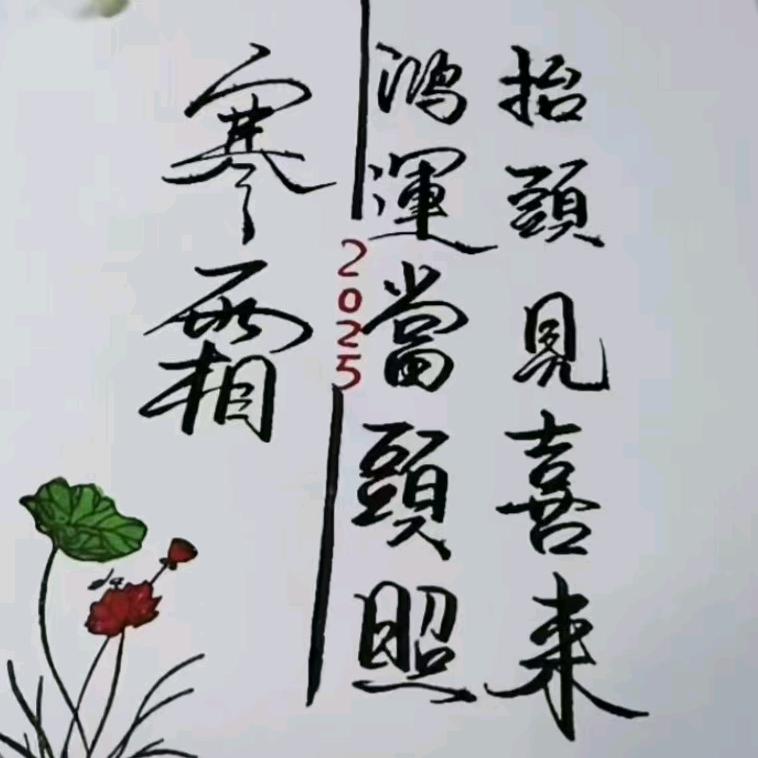 抬頭見喜来
鴻運當頭照
2025
寒霜